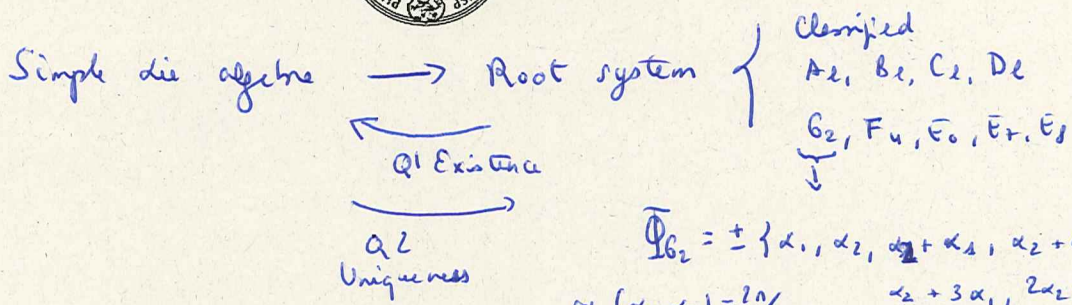 Simple Lie algebra → Root system { Classified
Aℓ, Bℓ, Cℓ, Dℓ
G₂, F₄, E₆, E₇, E₈
Q1 Existence
Q2
Uniqueness
Φ_G₂ = ± {α₁, α₂, α₂ + α₁, α₂ +
α₂ + 3α₁, 2α₂